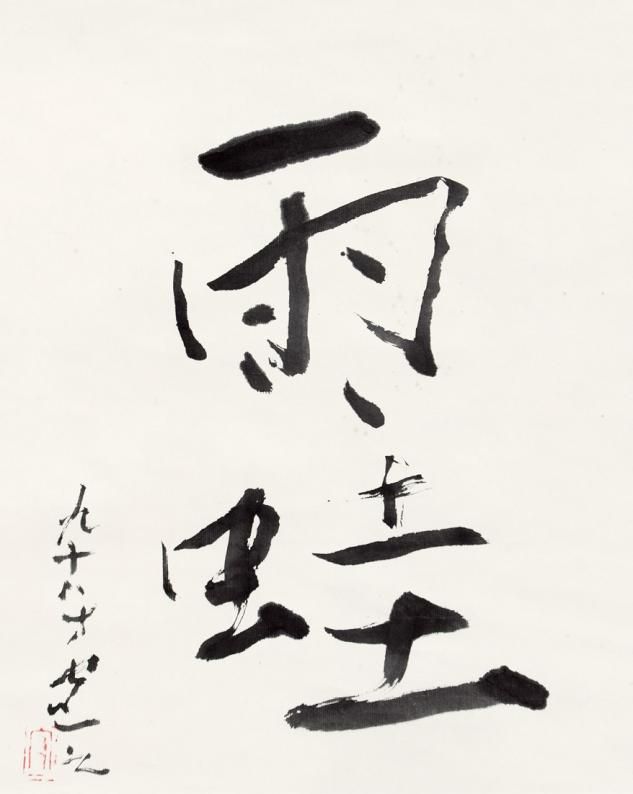 雨蛙
九十八才